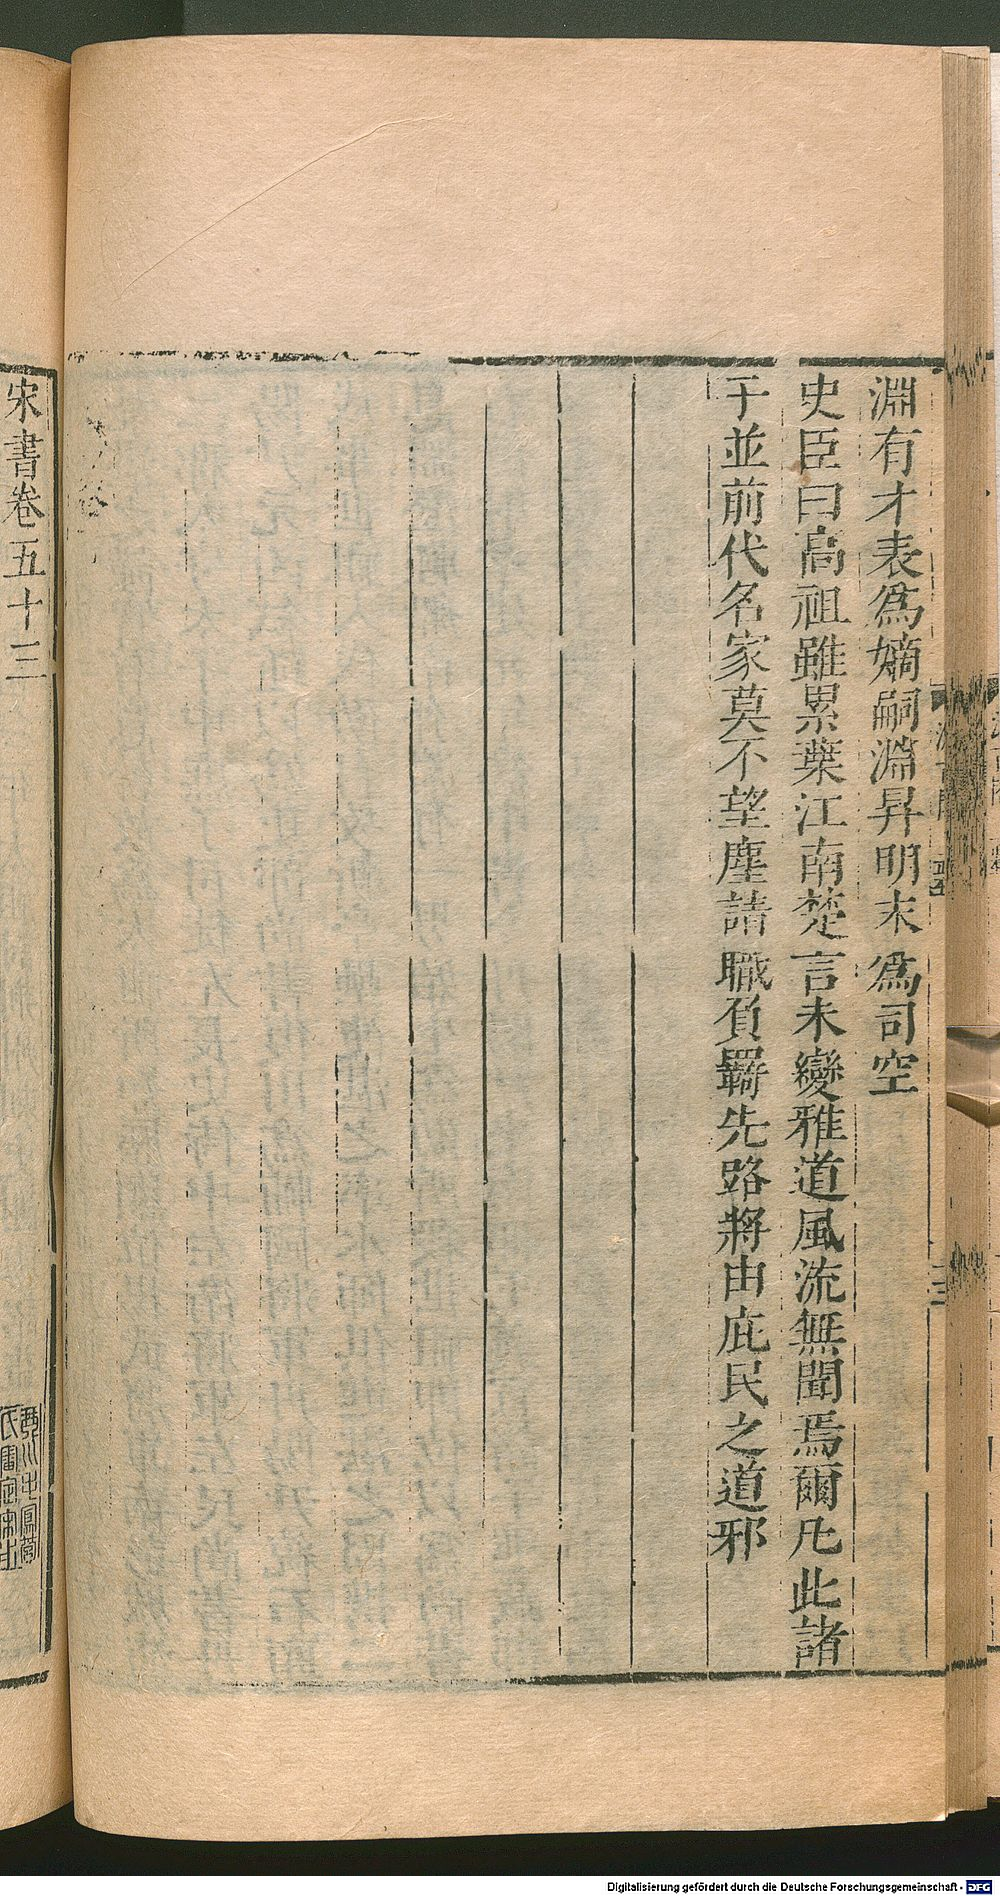 淵有才表爲嫡嗣淵昇明末爲司空
史臣曰高祖雖累葉江南楚言未變雅道風流無聞焉爾凡此諸
子並前代名家莫不望塵請職負羈先路將由庇民之道邪
宋書卷五十三
Digitalisierung gefördert durch die Deutsche Forschungsgemeinschaft - DFG